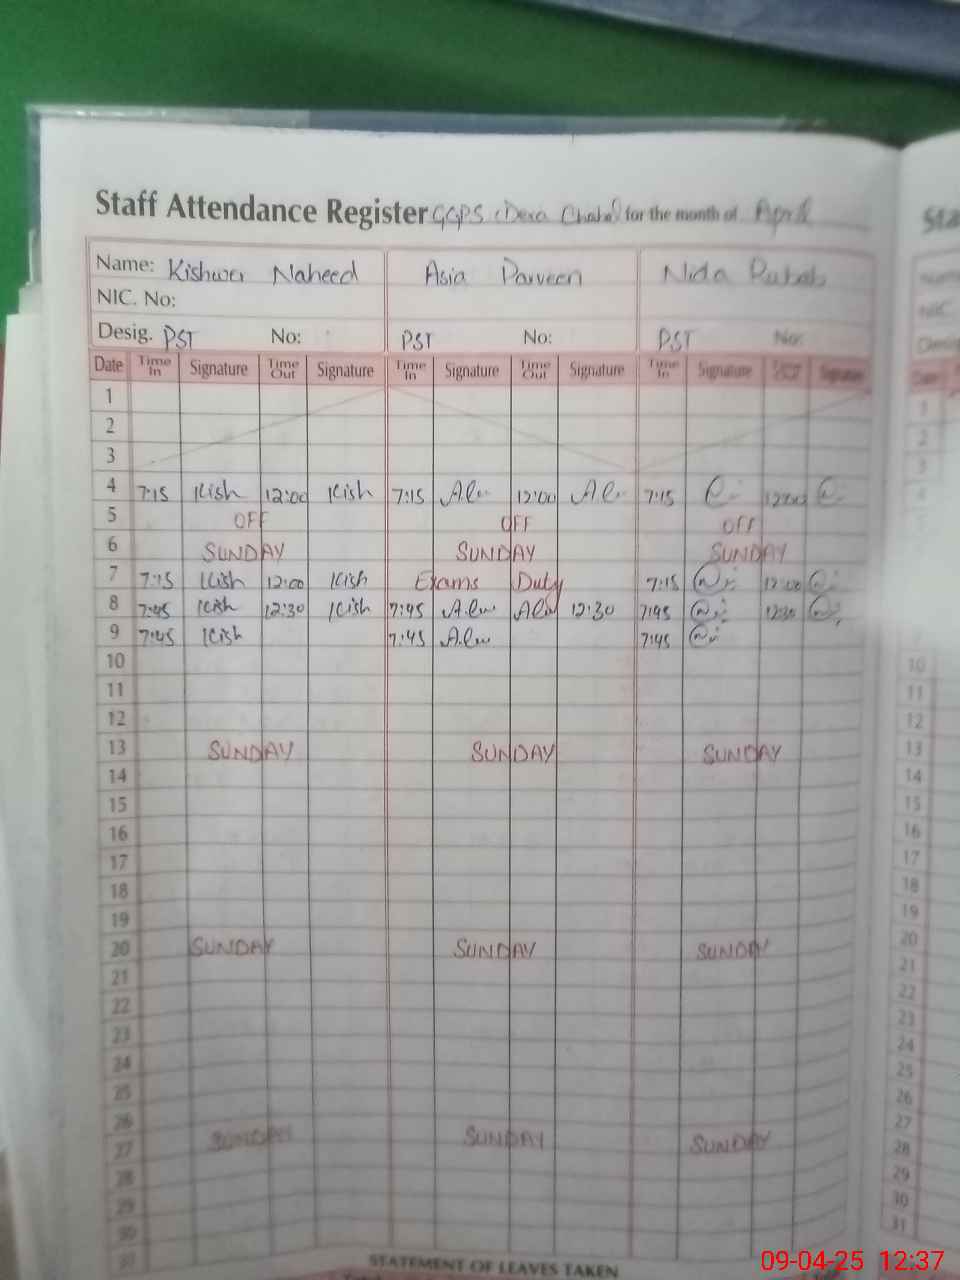 Staff Attendance Register GGPS (Dera Chaha) for the month of April
Name: Kishwer Naheed Asia Parveen Nida Rubab
NIC. No:
Desig. PST No: PST No: PST No:
Date Time In Signature Time Out Signature Time In Signature Time Out Signature Time In Signature Time Out Signature
1
2
3
4 7:15 Kish 12:00 Kish 7:15 12:00 7:15 12:00
5 OFF OFF OFF
6 SUNDAY SUNDAY SUNDAY
7 7:15 Kish 12:00 Kish Exams Duty 7:15 12:00
8 7:45 Kish 12:30 Kish 7:45 12:30 7:45 12:30
9 7:45 Kish 7:45 7:45
10
11
12
13 SUNDAY SUNDAY SUNDAY
14
15
16
17
18
19
20 SUNDAY SUNDAY SUNDAY
21
22
23
24
25
26
27 SUNDAY SUNDAY SUNDAY
28
29
30
31
STATEMENT OF LEAVES TAKEN
Sta
NIC.
1
2
3
10
11
12
13
14
15
16
17
18
19
20
21
22
23
24
25
26
27
28
29
30
31
09-04-25 12:37